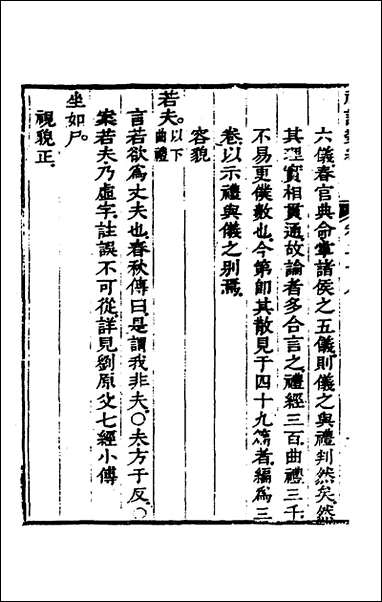 六儀春官典命掌諸侯之五儀則儀之與禮判然矣然
其理實相貫通故論者多合言之禮經三百曲禮三千
不易更僕數也今第卽其散見于四十九篇者編爲三
卷以示禮與儀之別焉
容貌
若夫。以下曲禮
言若欲爲丈夫也春秋傳曰是謂我非夫。〇夫方于反。〇
案若夫乃虛字註誤不可從詳見劉原父七經小傳
坐如尸。
視貌正。